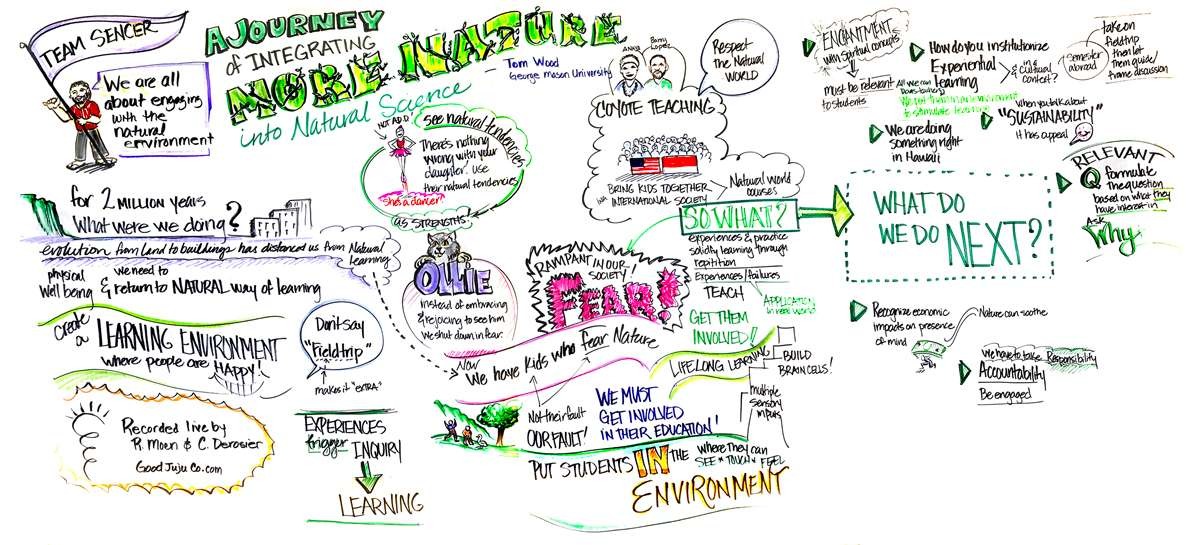 TEAM SENCER
We are all
about engaging
with the
natural
environment
A JOURNEY
of INTEGRATING
MORE NATURE
into Natural Science
Tom Wood
George Mason University
NOT A.D.D!
See natural tendencies
There's nothing
wrong with your
daughter. use
their natural tendencies
She's a dancer!
as STRENGTHS!
for 2 MILLION years
What were we doing?
evolution from land to buildings has distanced us from Natural
Learning
physical
Well being
& we need to
return to NATURAL way of learning
Create
a
LEARNING ENVIRONMENT
where people are HAPPY!
Recorded live by
R. Moen & C. Derosier
Good Juju Co.com
Don't say
"Fieldtrip"
makes it "EXTRA"
EXPERIENCES
trigger INQUIRY
LEARNING
OLLIE
instead of embracing
& rejoicing to see him
we shut down in fear.
RAMPANT IN OUR
SOCIETY
FEAR!
Now
We have kids who fear Nature
Not their fault
OUR FAULT!
WE MUST
GET INVOLVED
IN THEIR EDUCATION!
PUT STUDENTS IN THE
where they can
SEE * TOUCH * FEEL
ENVIRONMENT
Barry
Lopez
Respect
the Natural
WORLD
COYOTE TEACHING
BRING KIDS TOGETHER
with INTERNATIONAL SOCIETY
Natural world
courses
SO WHAT?
experiences & practice
solidify learning through
repitition
Experiences/failures
TEACH
APPLICATION
in real world
GET THEM
INVOLVED!
LIFELONG LEARNING
BUILD
BRAIN CELLS!
multiple
sensory
inputs
ENCHANTMENT
with spiritual concepts
must be relevant
to students
How do you institutionize
Experiential
learning
& in a
Cultural
context?
semester
abroad
take on
fieldtrip
then let
them guide/
frame discussion
We are doing
something right
in Hawaii
When you talk about
"SUSTAINABILITY"
it has appeal
RELEVANT
Q formulate
The question
based on what they
have interest in
Ask
Why
WHAT DO
WE DO NEXT?
Recognize economic
impacts on presence
of mind
Nature can soothe
we have to take Responsibility
Accountability
Be engaged